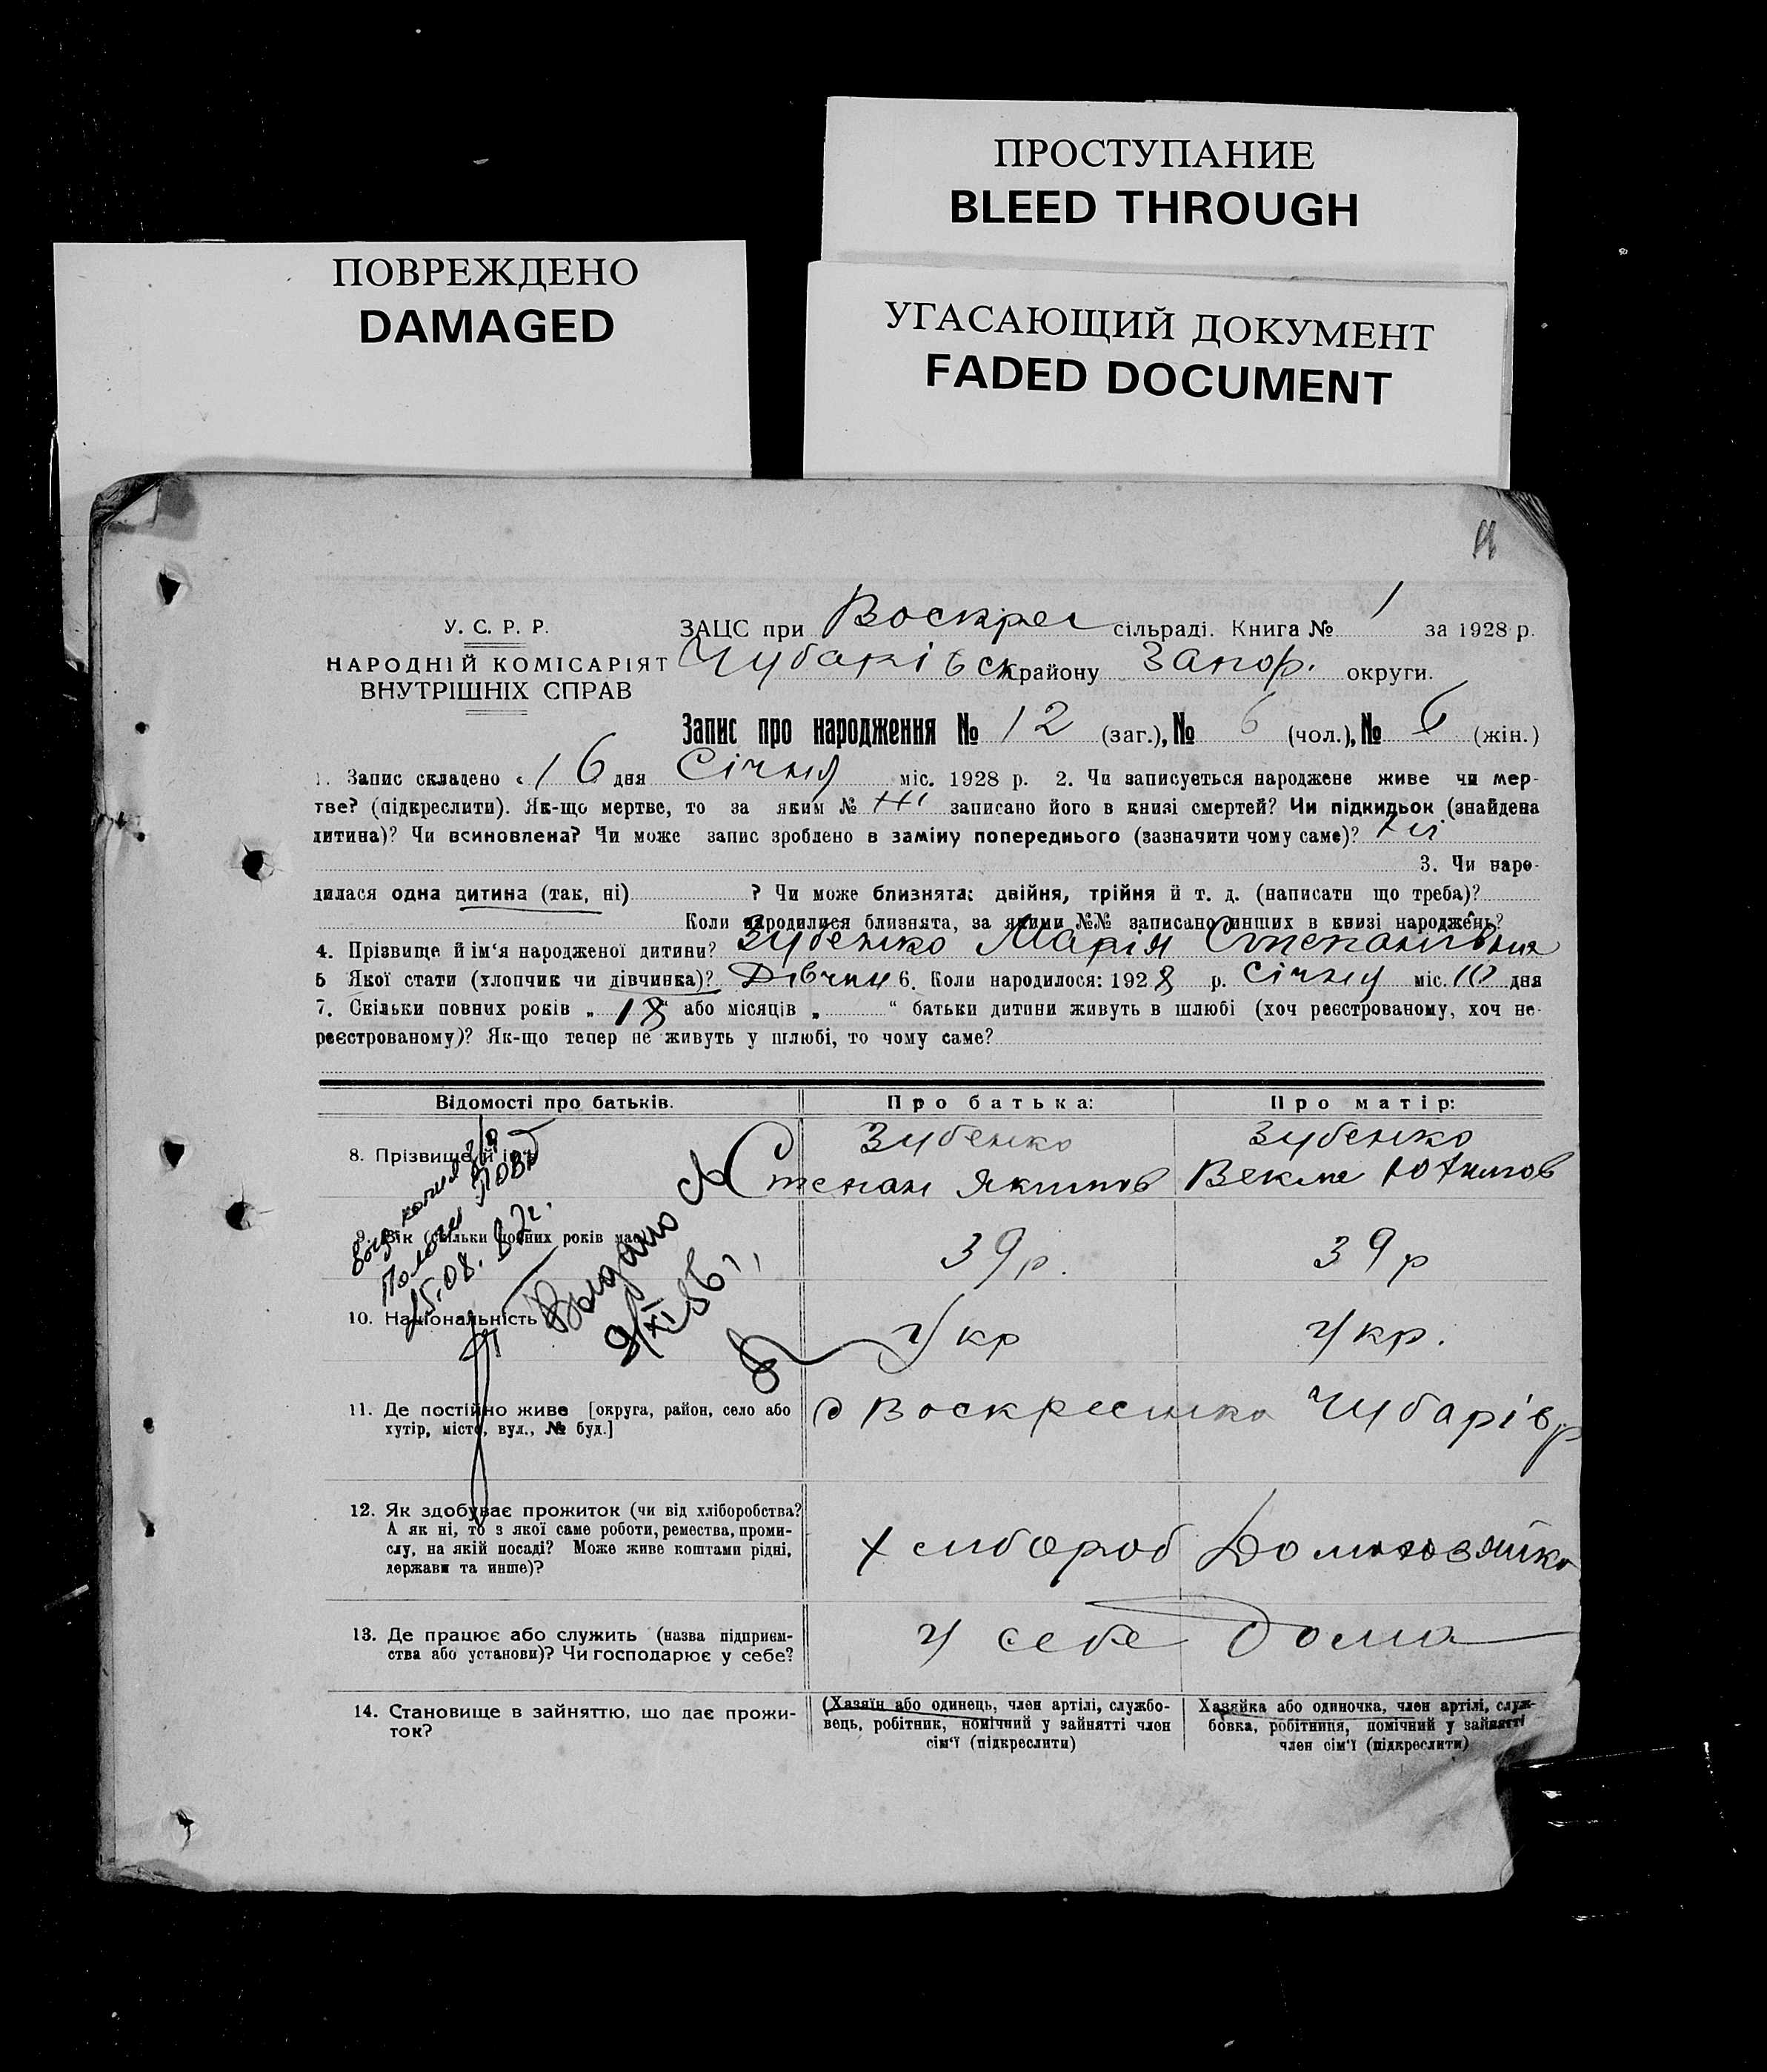 ПРОСТУПАНИЕ
BLEED THROUGH
ПОВРЕЖДЕНО
DAMAGED
УГАСАЮЩИЙ ДОКУМЕНТ
FADED DOCUMENT
У. С. Р. Р.
НАРОДНІЙ КОМІСАРІЯТ
ВНУТРІШНІХ СПРАВ
ЗАЦС при Воскрес сільраді. Книга № 1 за 1928 р.
Чубарівськ району Запор. округи.
Запис про народження № 12 (заг.), № 6 (чол.), № 6 (жін.)
1. Запис складено « 16 дня Січня міс. 1928 р. 2. Чи записується народжене живе чи мер-
тве? (підкреслити). Як-що мертве, то за яким № записано його в книзі смертей? Чи підкидьок (знайдена
дитина)? Чи всиновлена? Чи може запис зроблено в заміну попереднього (зазначити чому саме)? ні
3. Чи наро-
дилася одна дитина (так, ні) ? Чи може близнята: двійня, трійня й т. д. (написати що треба)?
Коли народилися близнята, за якими №№ записано инших в книзі народжень?
4. Прізвище й ім'я народженої дитини? Зубенко Марія Степанівна
5 Якої стати (хлопчик чи дівчинка)? Дівчин 6. Коли народилося: 1928 р. Січня міс. 10 дня
7. Скільки повних років „ 18 “ або місяців „ “ батьки дитини живуть в шлюбі (хоч реєстрованому, хоч не-
реєстрованому)? Як-що тепер не живуть у шлюбі, то чому саме?
Відомості про батьків. Про батька: Про матір:
8. Прізвище й ім'я Зубенко Зубенко
Степан Якимов Юхимов
9. Вік (скільки повних років має) 39 р. 39 р
10. Національність Укр Укр.
11. Де постійно живе [округа, район, село або
хутір, місто, вул., № буд.]
с Воскресенка Чубарів р
12. Як здобуває прожиток (чи від хліборобства?
А як ні, то з якої саме роботи, ремества, проми-
слу, на якій посаді? Може живе коштами рідні,
держави та инше)?
Хлибороб Домохозяйка
13. Де працює або служить (назва підприєм-
ства або установи)? Чи господарює у себе?
У себе дома
14. Становище в зайняттю, що дає прожи-
ток?
(Хазяїн або одинець, член артілі, службо-
вець, робітник, помічний у зайнятті член
сім'ї (підкреслити)
Хазяйка або одиночка, член артілі, служ-
бовка, робітниця, помічний у зайнятті
член сім'ї (підкреслити)
15.08.82г.
Выдано
9/XI 86 г.